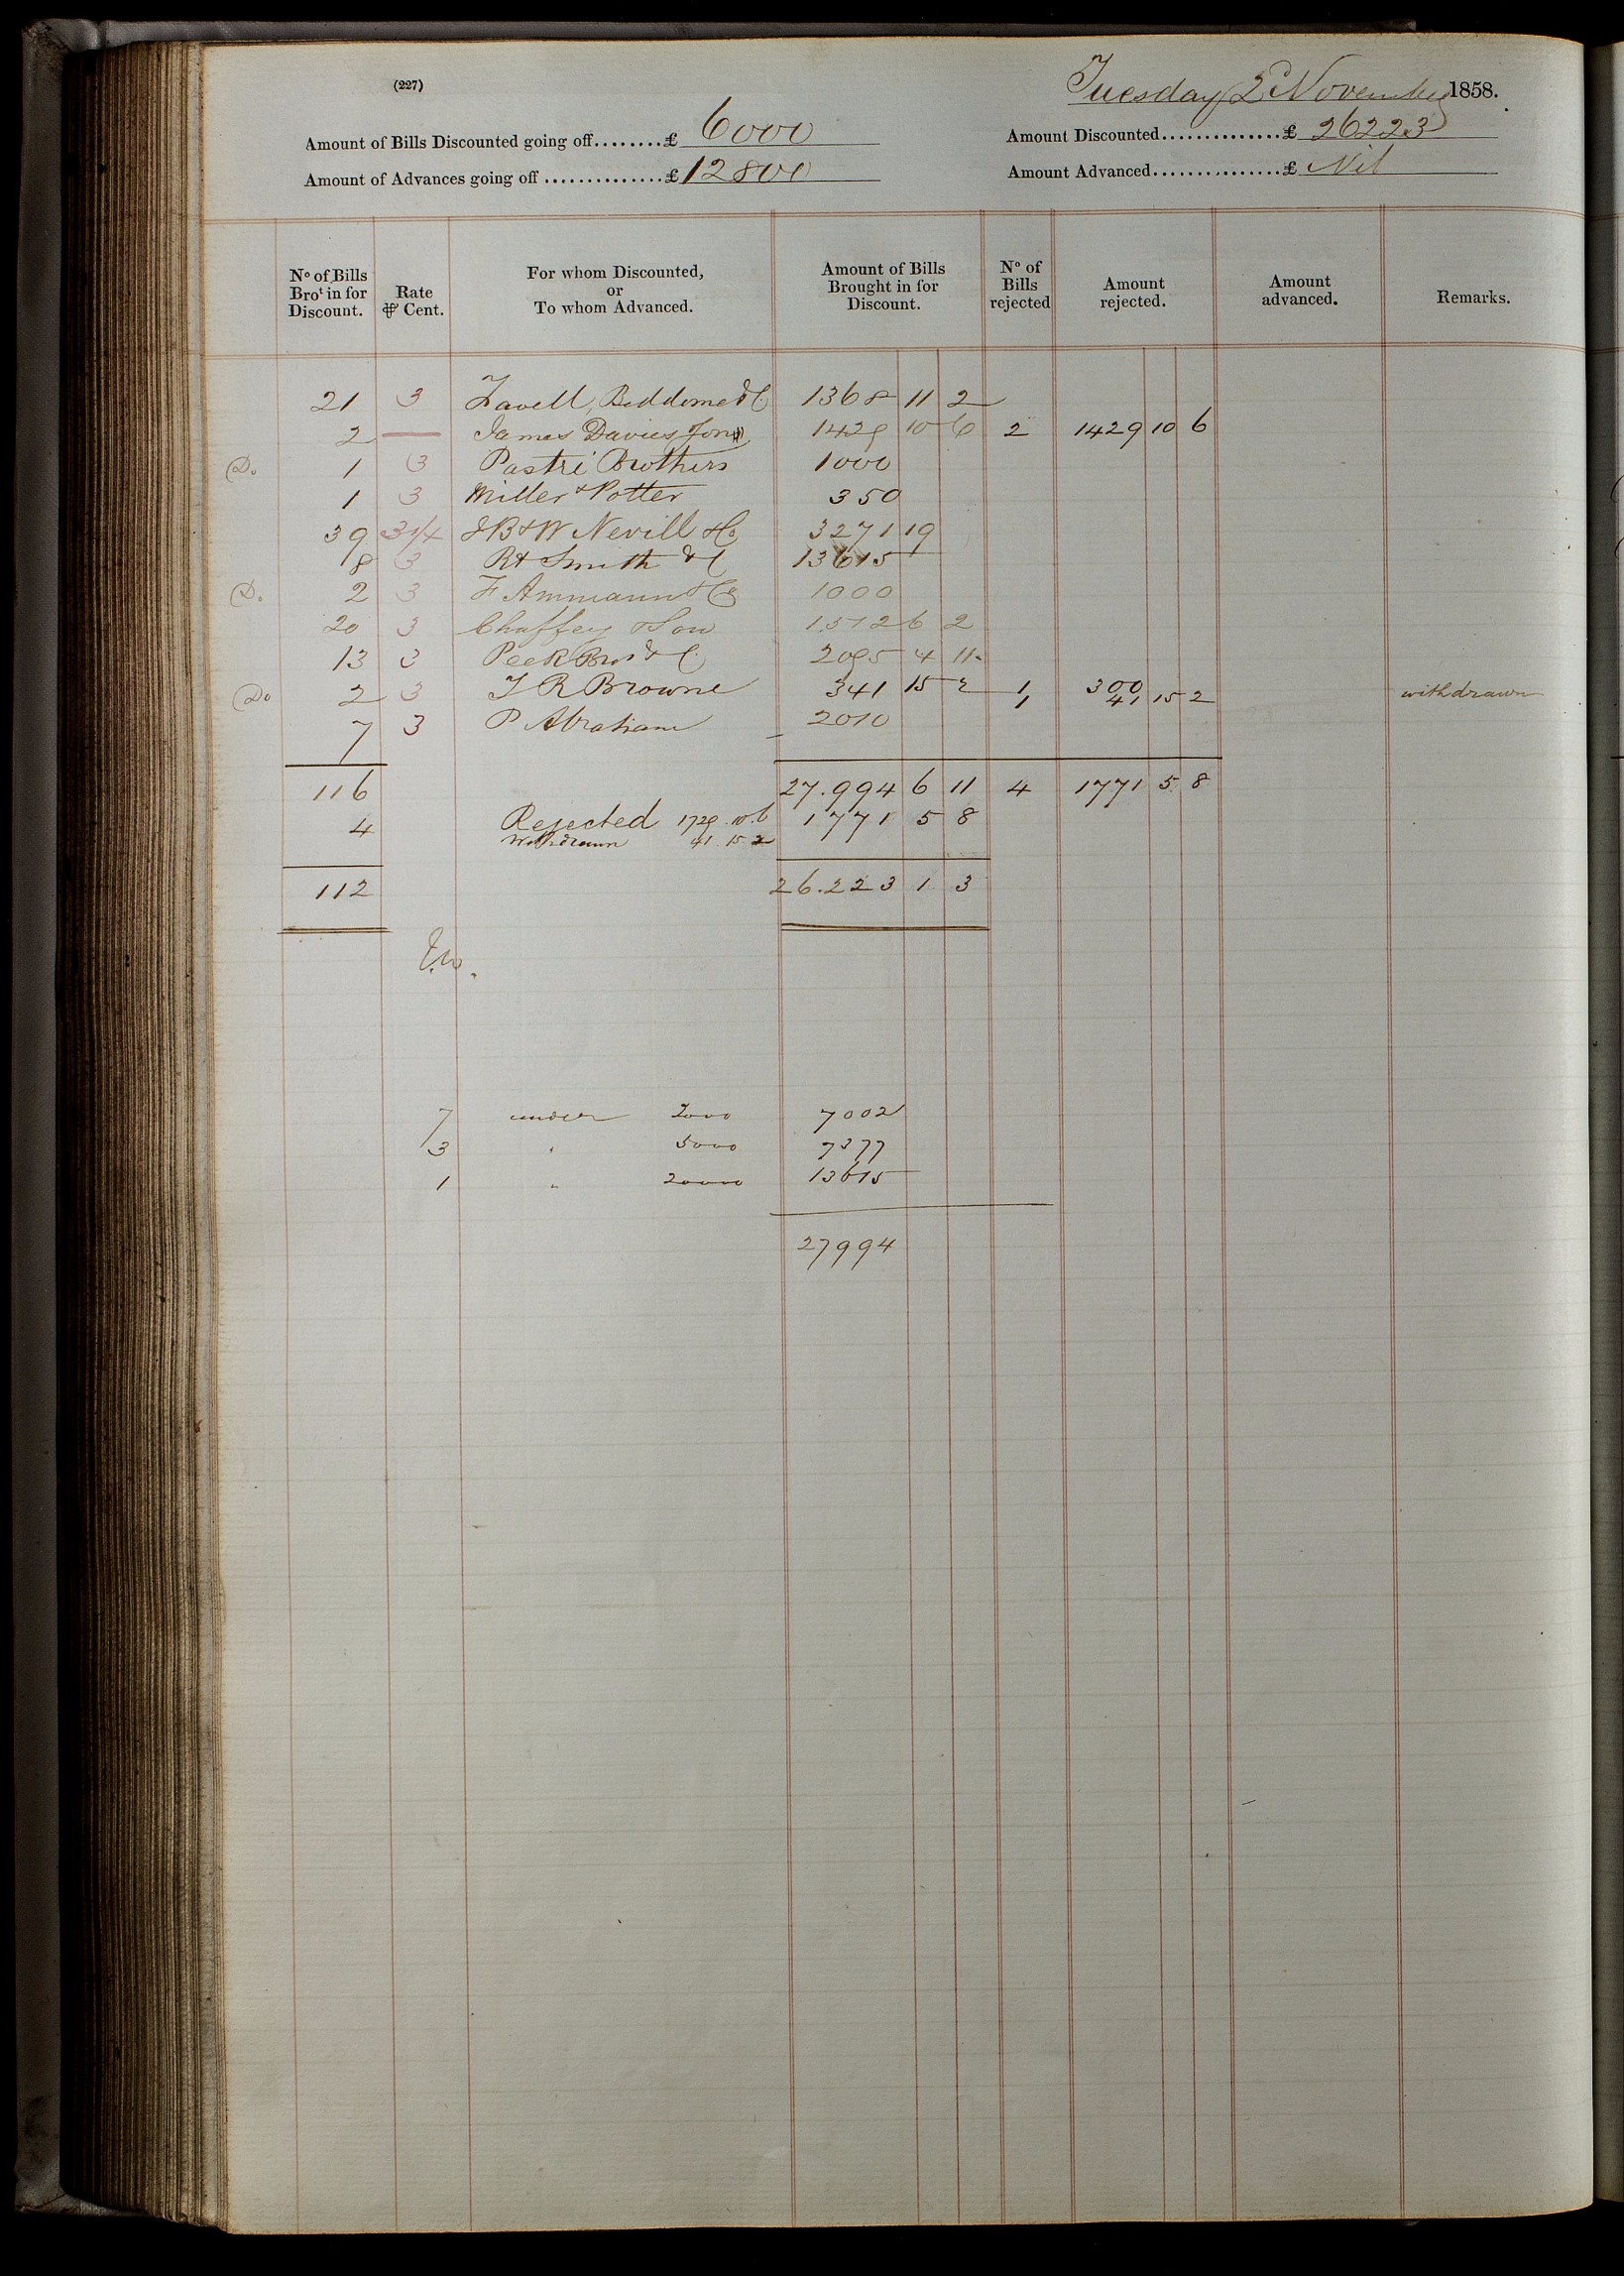 (227)
Tuesday 2 November 1858.
Amount of Bills Discounted going off........£ 6000
Amount Discounted...............£ 26223
Amount of Advances going off ..............£ 12800
Amount Advanced...............£ Nil
No of Bills Brot in for Discount.
Rate ⅌ Cent.
For whom Discounted, or To whom Advanced.
Amount of Bills Brought in for Discount.
No of Bills rejected
Amount rejected.
Amount advanced.
Remarks.
21 3 Beddome & C 1368 11 2
2 — James Davies 1429 10 6 2 1429 10 6
Do 1 3 Brothers 1000
1 3 Miller & Potter 350
39 3¼ J B & W Nevill & Co 3271 19
8 3 Rt Smith & C 13615
Do 2 3 F Ammann & Co 1000
20 3 Chaffey & Son 1512 6 2
13 3 Peek Bros & C 2095 4 11
Do 2 3 J R Browne 341 15 2 1 300
1 41 15 2 withdrawn
7 3 P Abraham 2010
116 27.994 6 11 4 1771 5 8
4 Rejected 1729.10.6 1771 5 8
Withdrawn 41.15.2
112 26.223 1 3
7 under 2000 7002
3 " 5000 7377
1 " 20000 13615
27994